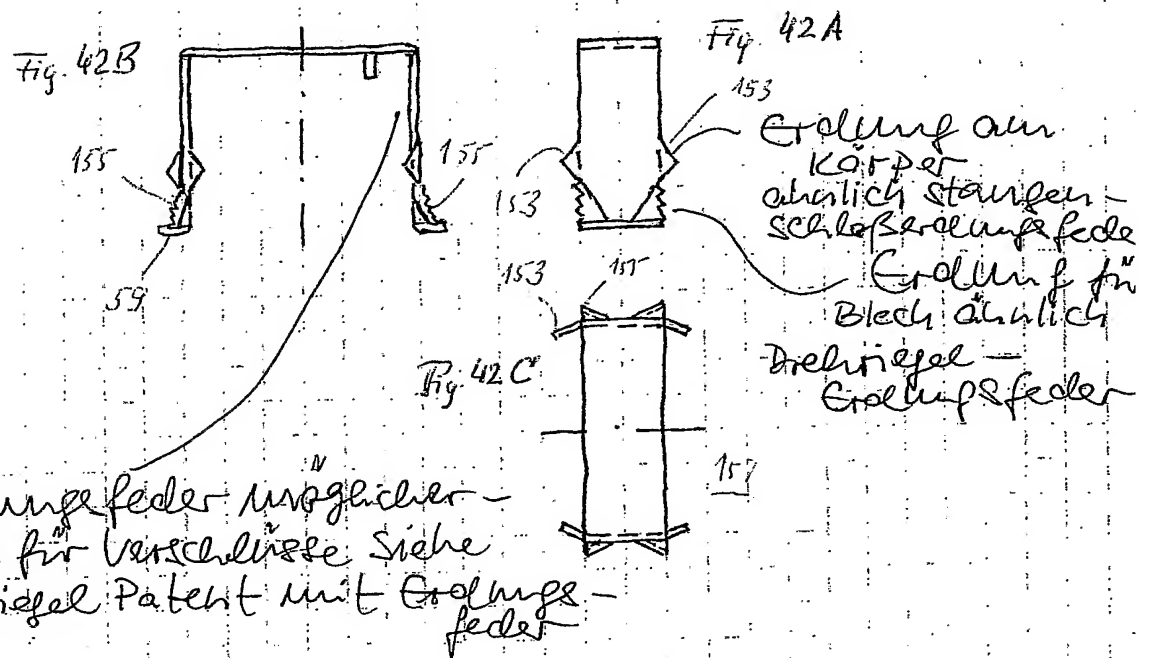 Fig. 42B
155
155
59
Fig. 42A
153
153
Erdung am
Körper
ähnlich Stangen-
schloßerdungsfede
Erdung für
Blech ähnlich
Drehriegel-
Erdungsfeder
153
155
Fig. 42C
157
ungsfeder möglicher-
für Verschlüsse Siehe
iegel Patent mit Erdungs-
feder